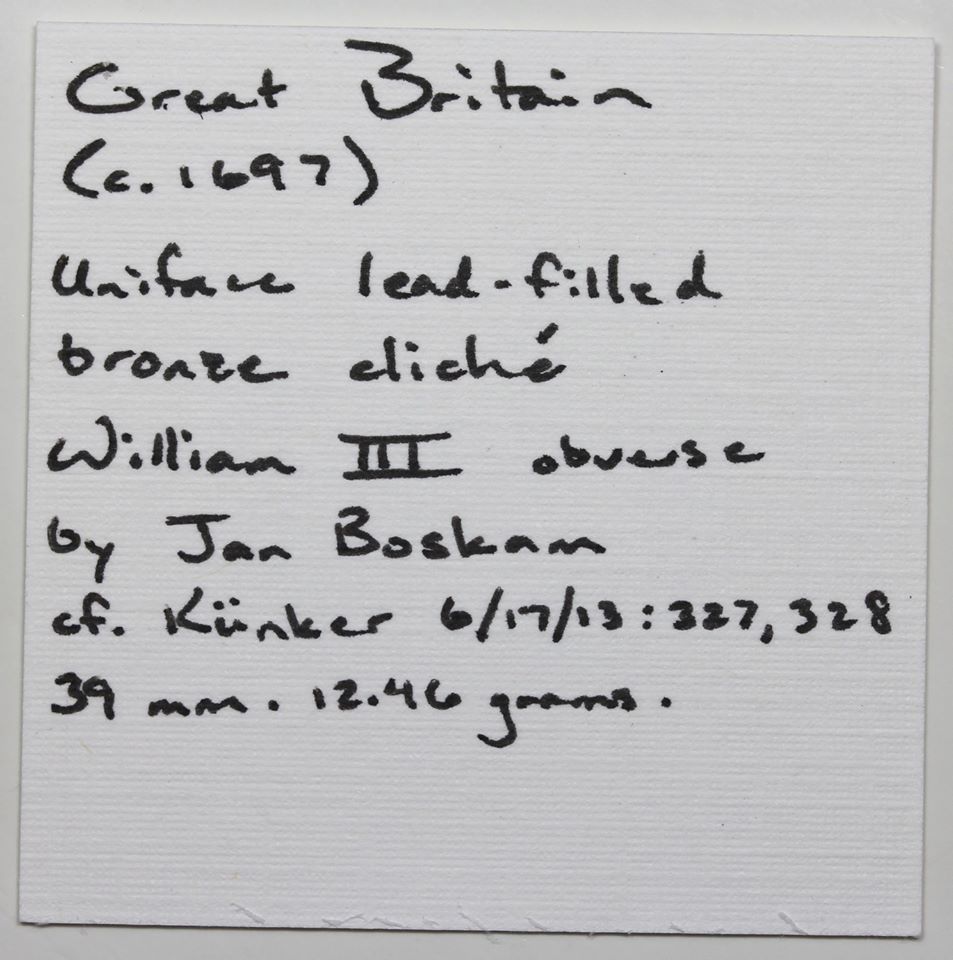 Great Britain
(c. 1697)
Uniface lead-filled
bronze cliché
William III obverse
by Jan Boskam
cf. Künker 6/17/13: 327, 328
39 mm. 12.46 grams.